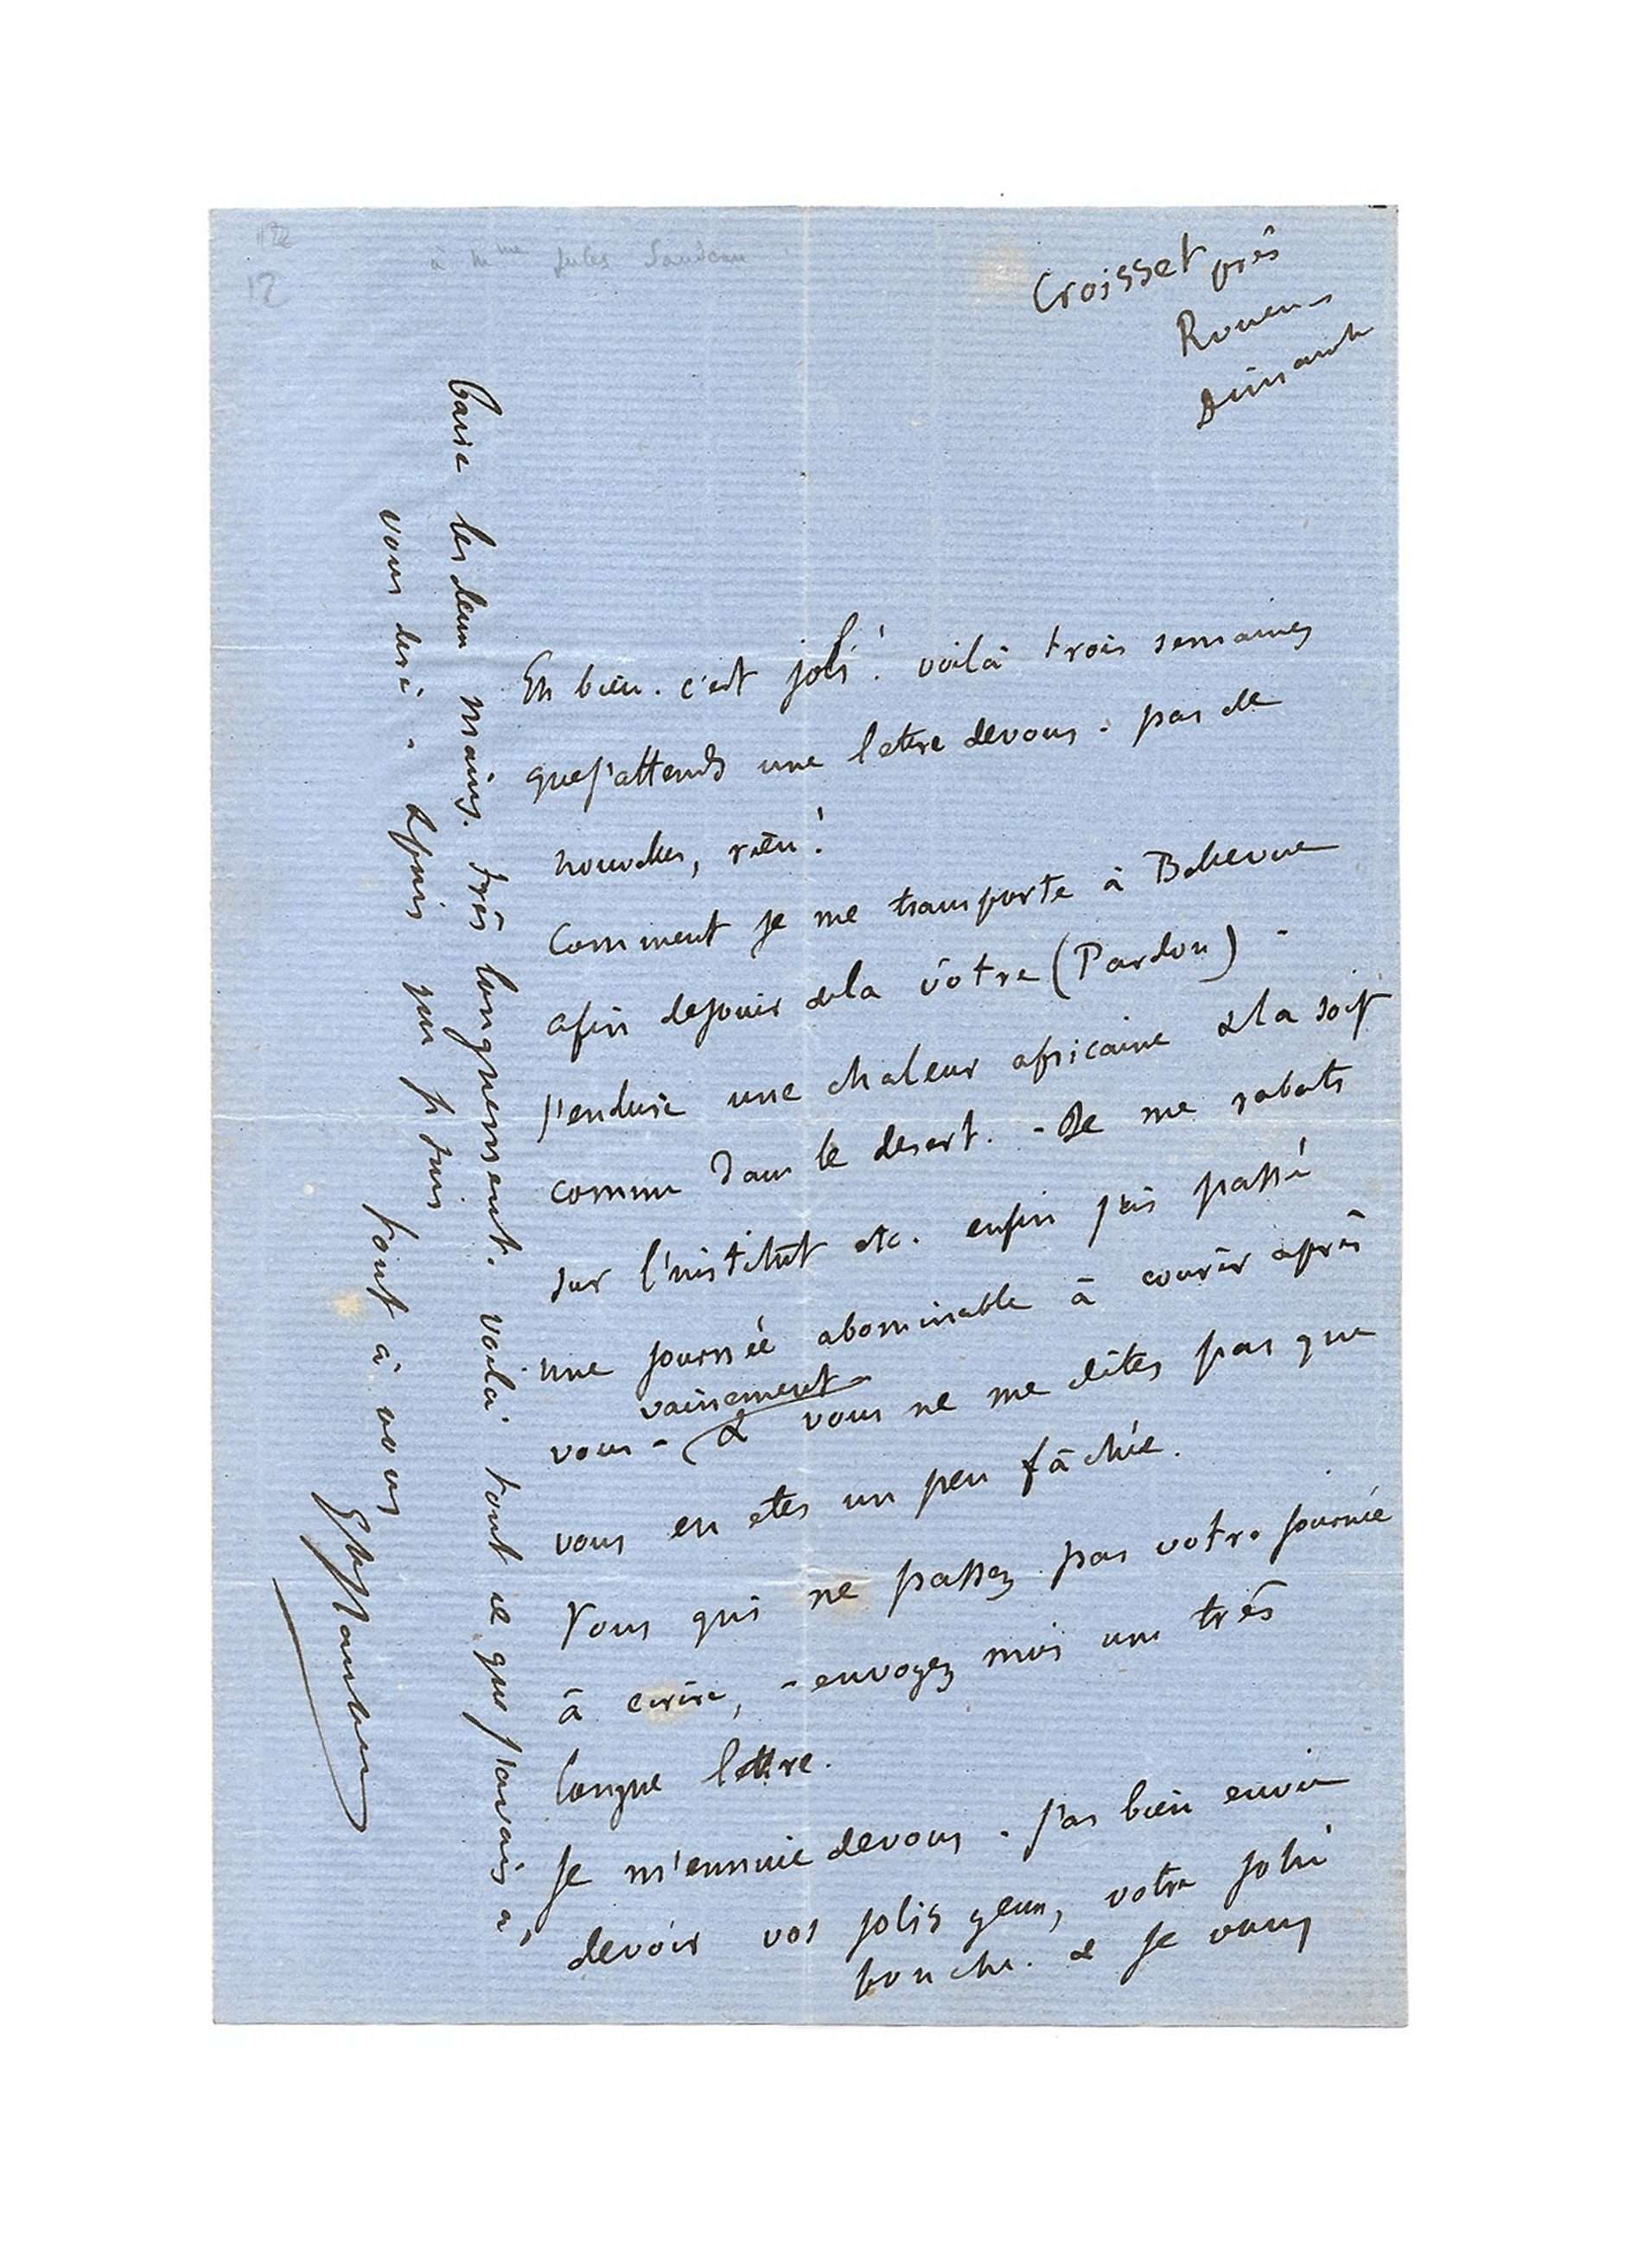 12
à Mme Jules Sandeau
Croisset près
Rouen
Dimanche
Eh bien. c'est joli! voilà trois semaines
que j'attends une lettre de vous. pas de
nouvelles, rien!
Comment je me transporte à Bellevue
afin de jouir de la vôtre (Pardon) -
j'endure une chaleur africaine & la soif
comme dans le desert. - Je me rabats
sur l'institut etc. enfin j'ai passé
une journée abominable à courir après
vainement
vous - & vous ne me dites pas que
vous en etes un peu fâchée.
Vous qui ne passez pas votre journée
à ecrire, - envoyez moi une très
longue lettre.
Je m'ennuie de vous. j'ai bien envie
de voir vos jolis yeux, votre jolie
bouche. & je vous
baise les deux mains. très longuement. voilà tout ce que j'avais à
vous dire. - depuis que je suis tout à vous
Gve Flaubert